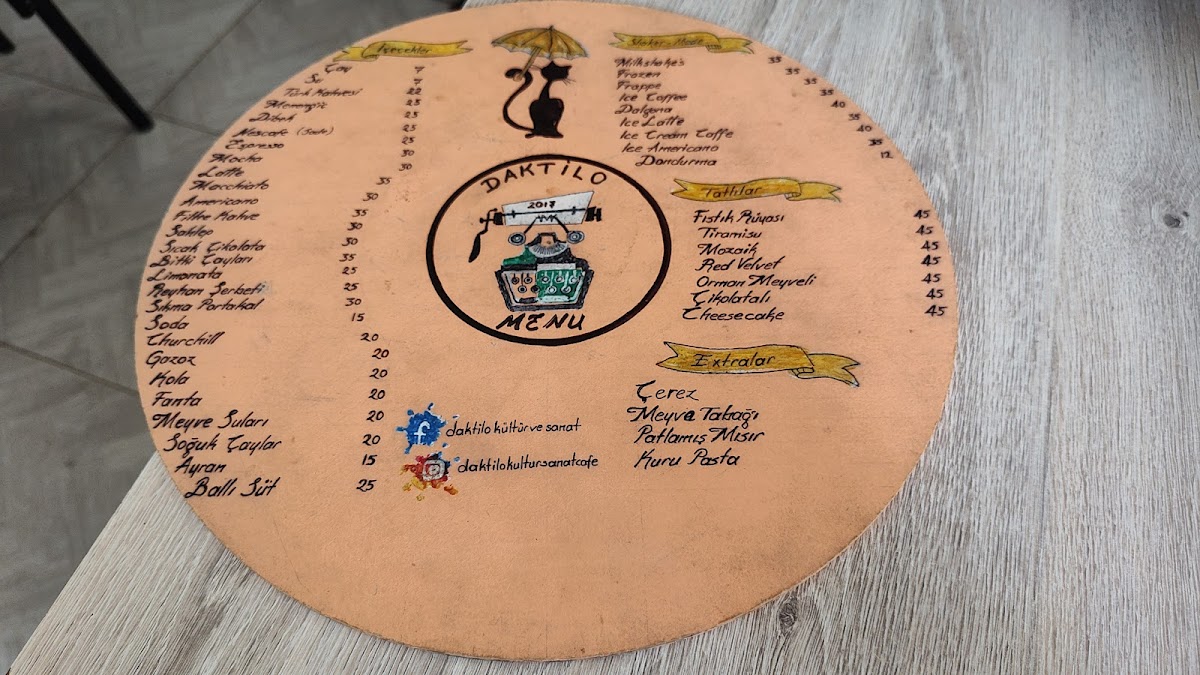 İçecekler
Çay 7
Su 7
Türk Kahvesi 22
Menengiç 25
Dibek 25
Nescafe (Sade) 25
Espresso 25
Mocha 30
Latte 30
Macchiato 35
Americano 30
Filtre Kahve 35
Sahlep 30
Sıcak Çikolata 30
Bitki Çayları 35
Limonata 25
Reyhan Şerbeti 25
Sıkma Portakal 30
Soda 15
Churchill 20
Gazoz 20
Kola 20
Fanta 20
Meyve Suları 20
Soğuk Çaylar 20
Ayran 15
Ballı Süt 25
DAKTİLO
2017
MENU
daktilo kültür ve sanat
daktilokultursanatcafe
Milkshake's
Frozen
Frappe
Ice Coffee
Dalgona
Ice Latte
Ice Cream Coffe
Ice Americano
Dondurma
35
35
35
40
35
40
35
12
Tatlılar
Fıstık Rüyası 45
Tiramisu 45
Mozaik 45
Red Velvet 45
Orman Meyveli 45
Çikolatalı 45
Cheesecake 45
Extralar
Çerez
Meyve Tabağı
Patlamış Mısır
Kuru Pasta